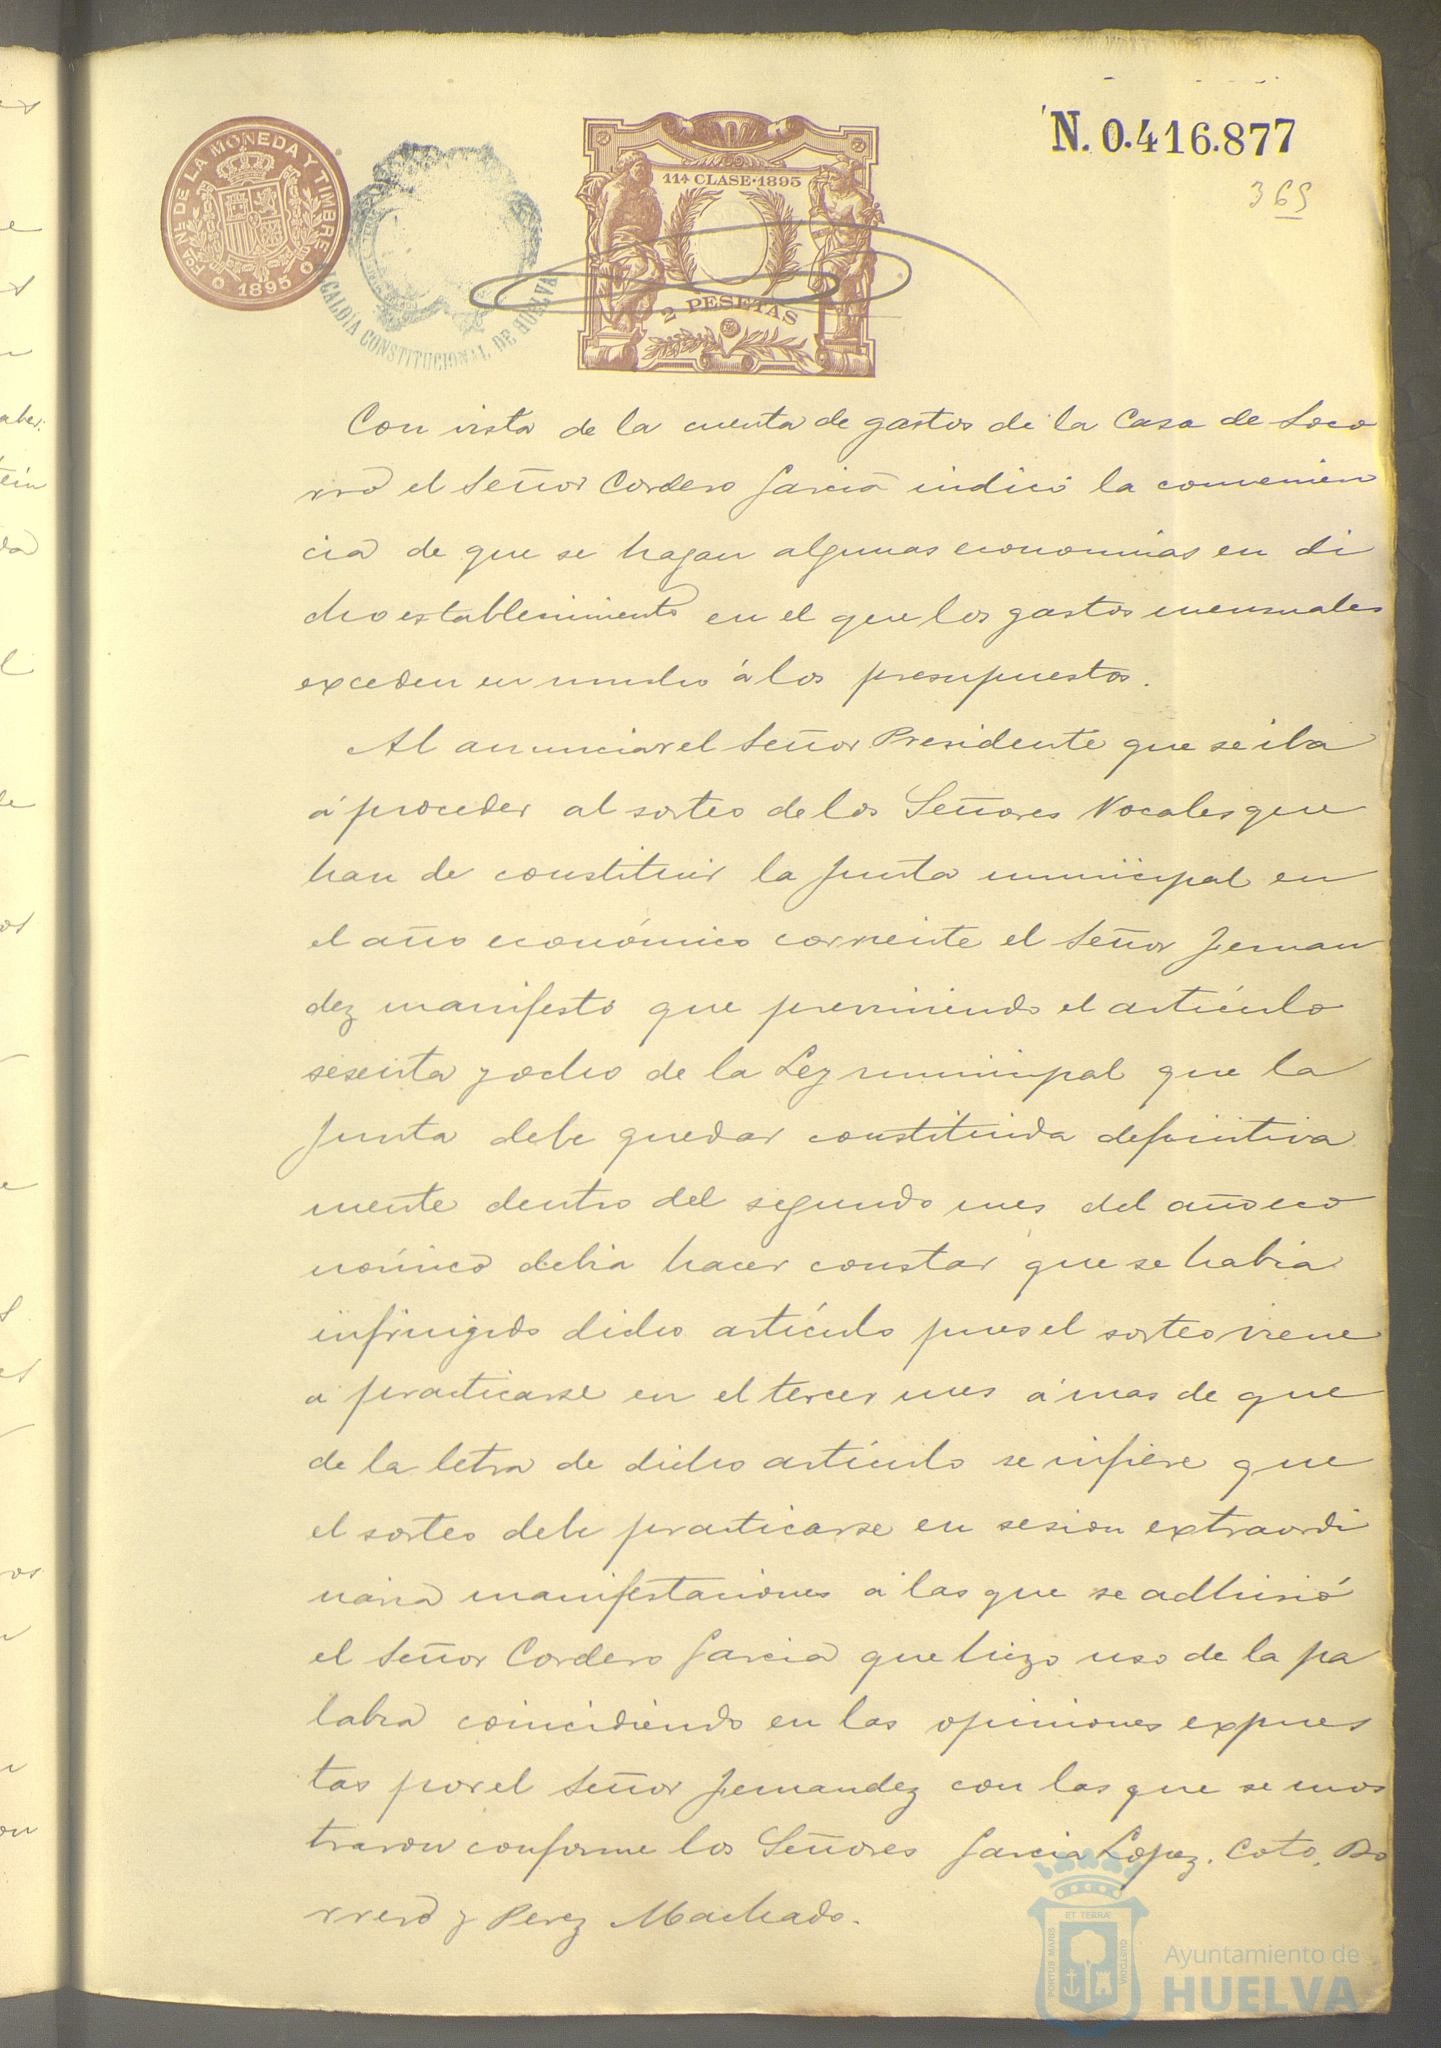 N. 0.416.877
365
FCA. NL. DE LA MONEDA Y TIMBRE
1895
ALCALDÍA CONSTITUCIONAL DE HUELVA
11ª CLASE·1895
2 PESETAS
Con vista de la cuenta de gastos de la Casa de Soco
rro el Señor Cordero Garcia indicó la convenien
cia de que se hagan algunas economias en di
cho establecimiento en el que los gastos mensuales
exceden en mucho á los presupuestos.
Al anunciar el Señor Presidente que se iba
á proceder al sorteo de los Señores Vocales que
han de constituir la Junta municipal en
el año económico corriente el Señor Fernan
dez manifestó que previniendo el artículo
sesenta y ocho de la Ley municipal que la
Junta debe quedar constituida definitiva
mente dentro del segundo mes del año eco
nómico debia hacer constar que se habia
infringido dicho artículo pues el sorteo viene
á practicarse en el tercer mes á mas de que
de la letra de dicho artículo se infiere que
el sorteo debe practicarse en sesion extraordi
naria manifestaciones á las que se adhirió
el Señor Cordero Garcia que hizo uso de la pa
labra coincidiendo en las opiniones expues
tas por el Señor Fernandez con las que se mos
traron conforme los Señores Garcia Lopez, Coto, Bo
rrero y Perez Machado.
ET TERRÆ
PORTUS MARIS
CUSTODIA
Ayuntamiento de
HUELVA